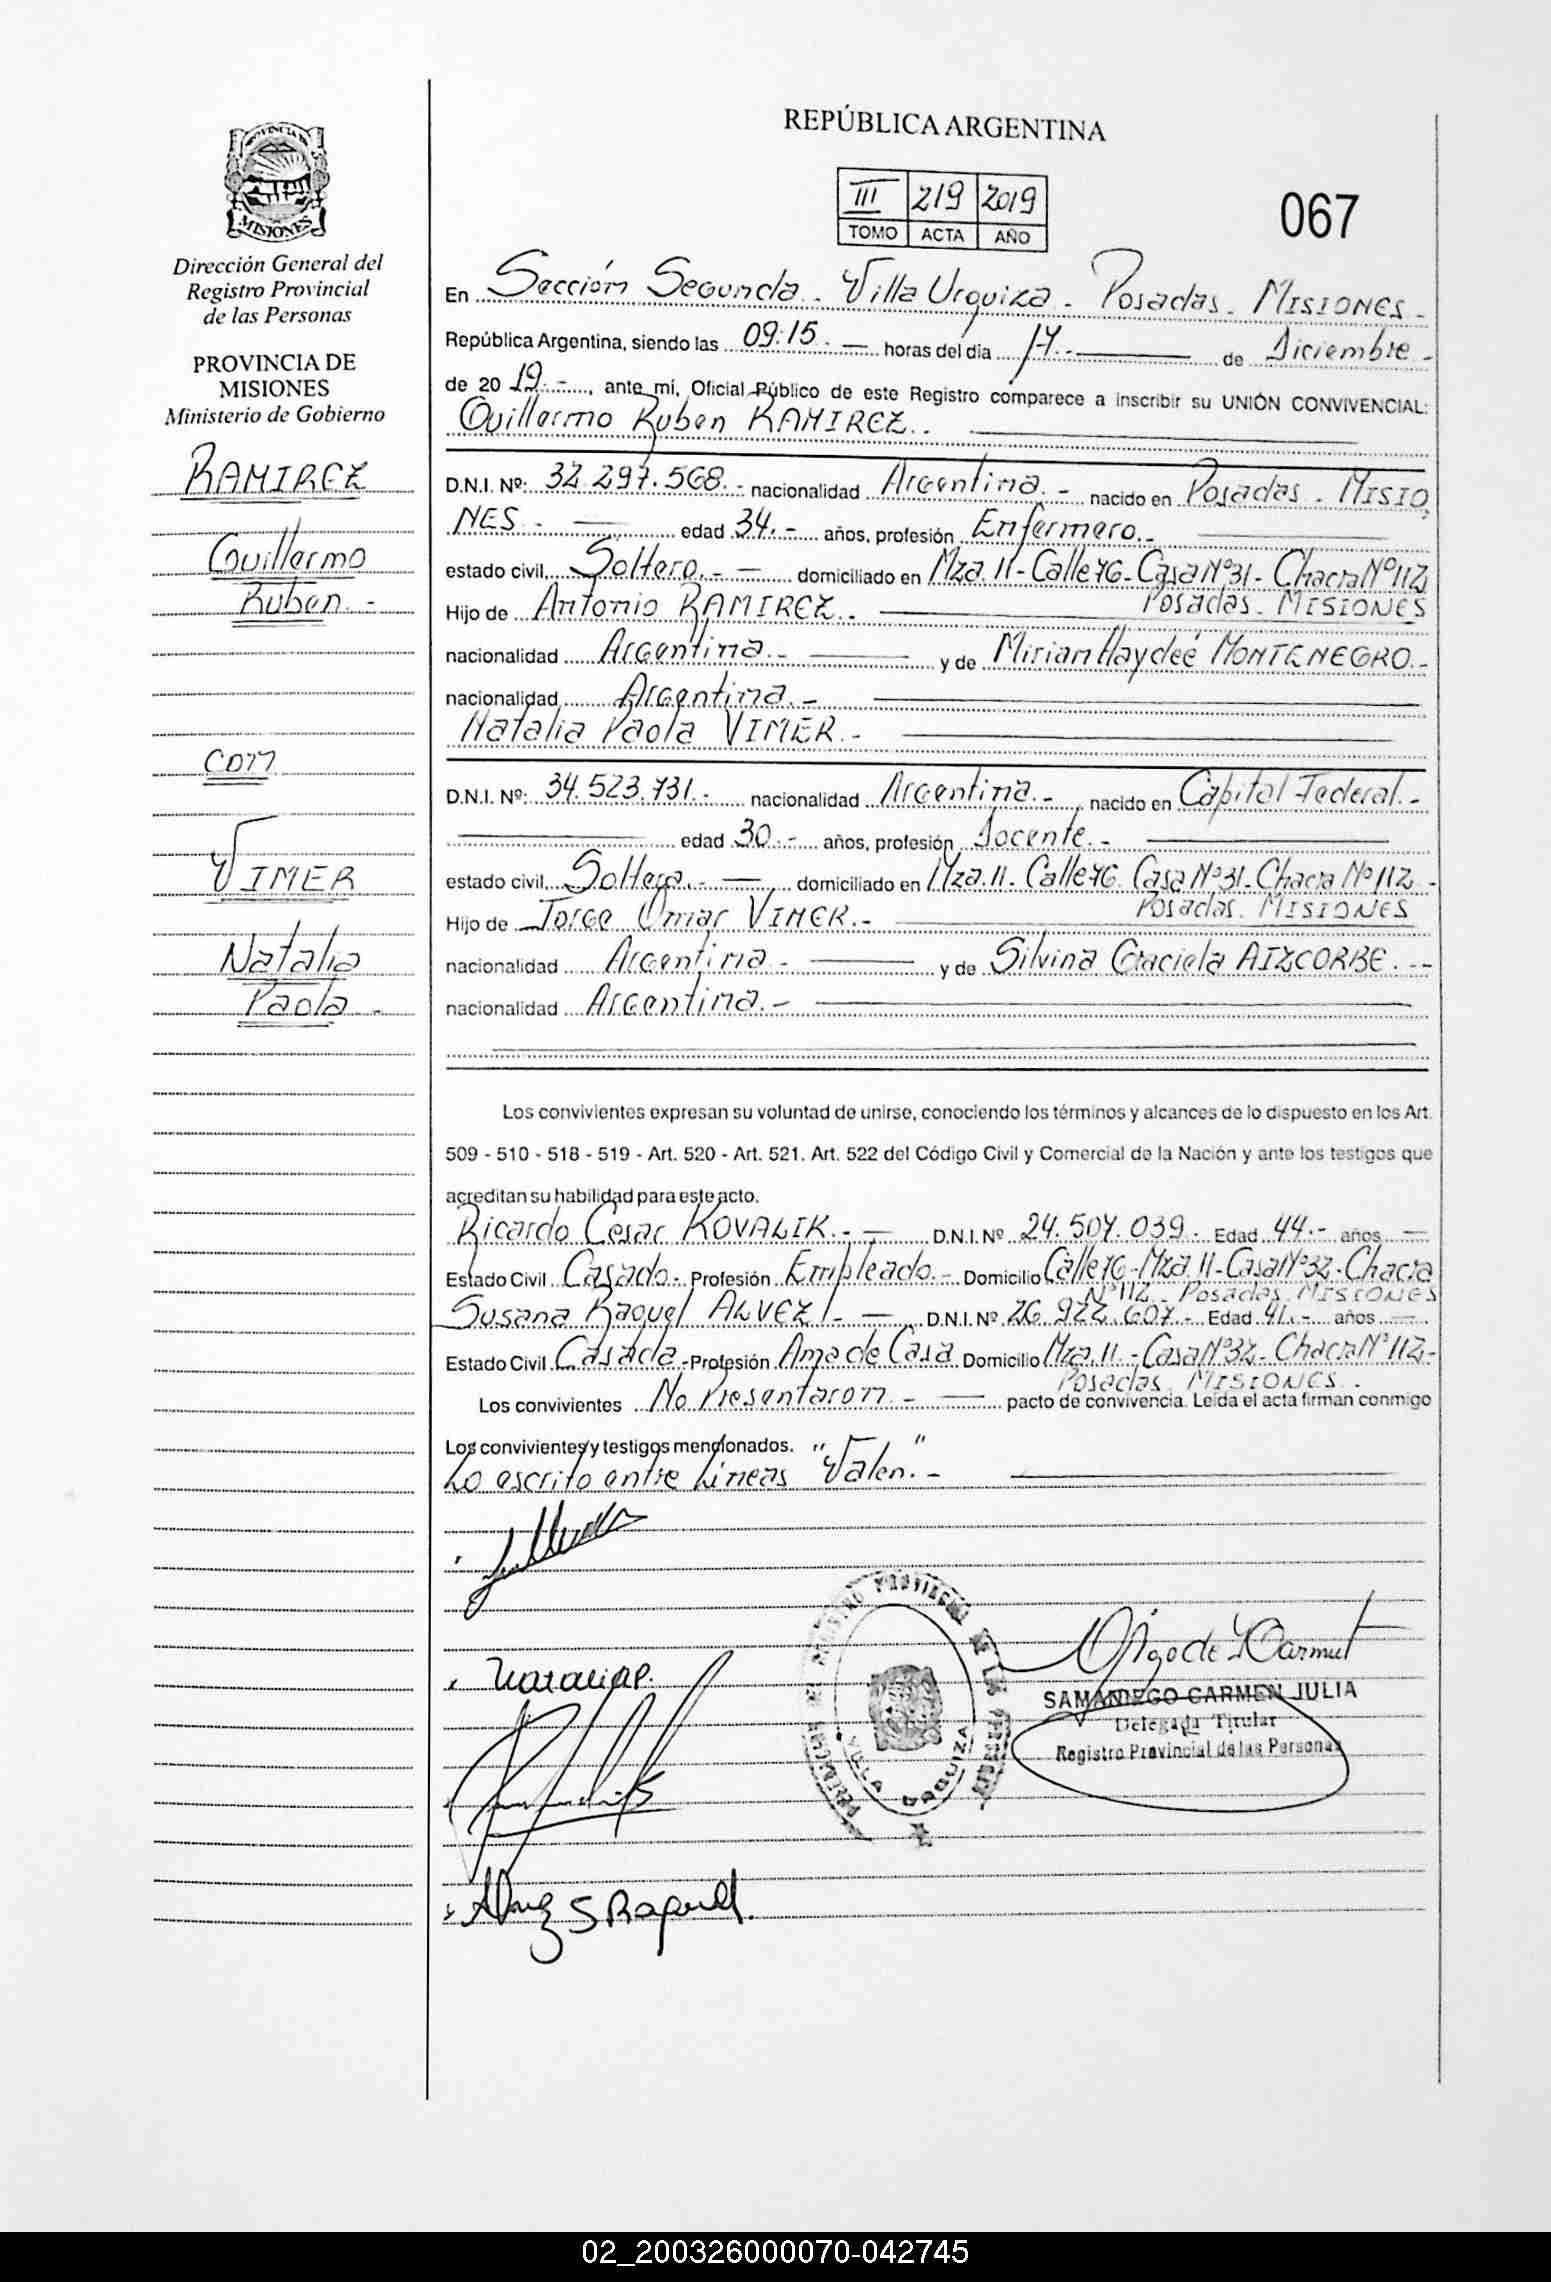 REPÚBLICA ARGENTINA
PROVINCIA DE
MISIONES
III 219 2019
TOMO ACTA AÑO
067
Dirección General del
Registro Provincial
de las Personas
PROVINCIA DE
MISIONES
Ministerio de Gobierno
RAMIREZ
Guillermo
Ruben.-
con
VIMER
Natalia
Paola.-
En Sección Segunda - Villa Urquiza - Posadas - MISIONES -
República Argentina, siendo las 09:15.- horas del día 17.- de Diciembre -
de 2019.-, ante mí, Oficial Público de este Registro comparece a inscribir su UNIÓN CONVIVENCIAL:
Guillermo Ruben RAMIREZ..
D.N.I. Nº: 32.297.568.- nacionalidad Argentina.- nacido en Posadas - MISIO
NES - edad 34.- años, profesión Enfermero.-
estado civil Soltero.- domiciliado en Mza. 11 - Calle 76 - Casa Nº 31 - Chacra Nº 112
Posadas - MISIONES
Hijo de Antonio RAMIREZ..
nacionalidad Argentina.- y de Mirian Haydeé MONTENEGRO.-
nacionalidad Argentina.-
Natalia Paola VIMER.-
D.N.I. Nº: 34.523.731.- nacionalidad Argentina.- nacido en Capital Federal.-
edad 30.- años, profesión Docente.-
estado civil Soltera.- domiciliado en Mza. 11 - Calle 76 - Casa Nº 31 - Chacra Nº 112 -
Posadas - MISIONES
Hijo de Jorge Omar VIMER.-
nacionalidad Argentina.- y de Silvina Graciela AIZCORBE.--
nacionalidad Argentina.-
Los convivientes expresan su voluntad de unirse, conociendo los términos y alcances de lo dispuesto en los Art.
509 - 510 - 518 - 519 - Art. 520 - Art. 521. Art. 522 del Código Civil y Comercial de la Nación y ante los testigos que
acreditan su habilidad para este acto.
Ricardo Cesar KOVALIK.- D.N.I. Nº 24.507.039.- Edad 44.- años
Estado Civil Casado.- Profesión Empleado.- Domicilio Calle 76 - Mza 11 - Casa Nº 32 - Chacra
Nº 112 - Posadas MISIONES
Susana Raquel ALVEZ.- D.N.I. Nº 26.922.607.- Edad 41.- años
Estado Civil Casada - Profesión Ama de Casa Domicilio Mza. 11 - Casa Nº 32 - Chacra Nº 112 -
Posadas MISIONES.
Los convivientes No Presentaron.- pacto de convivencia. Leída el acta firman conmigo
Los convivientes y testigos mencionados.
Lo escrito entre Líneas "Valen".-
SAMANIEGO CARMEN JULIA
Delegada Titular
Registro Provincial de las Personas
VILLA URQUIZA
Alvez S Raquel.
02_200326000070-042745